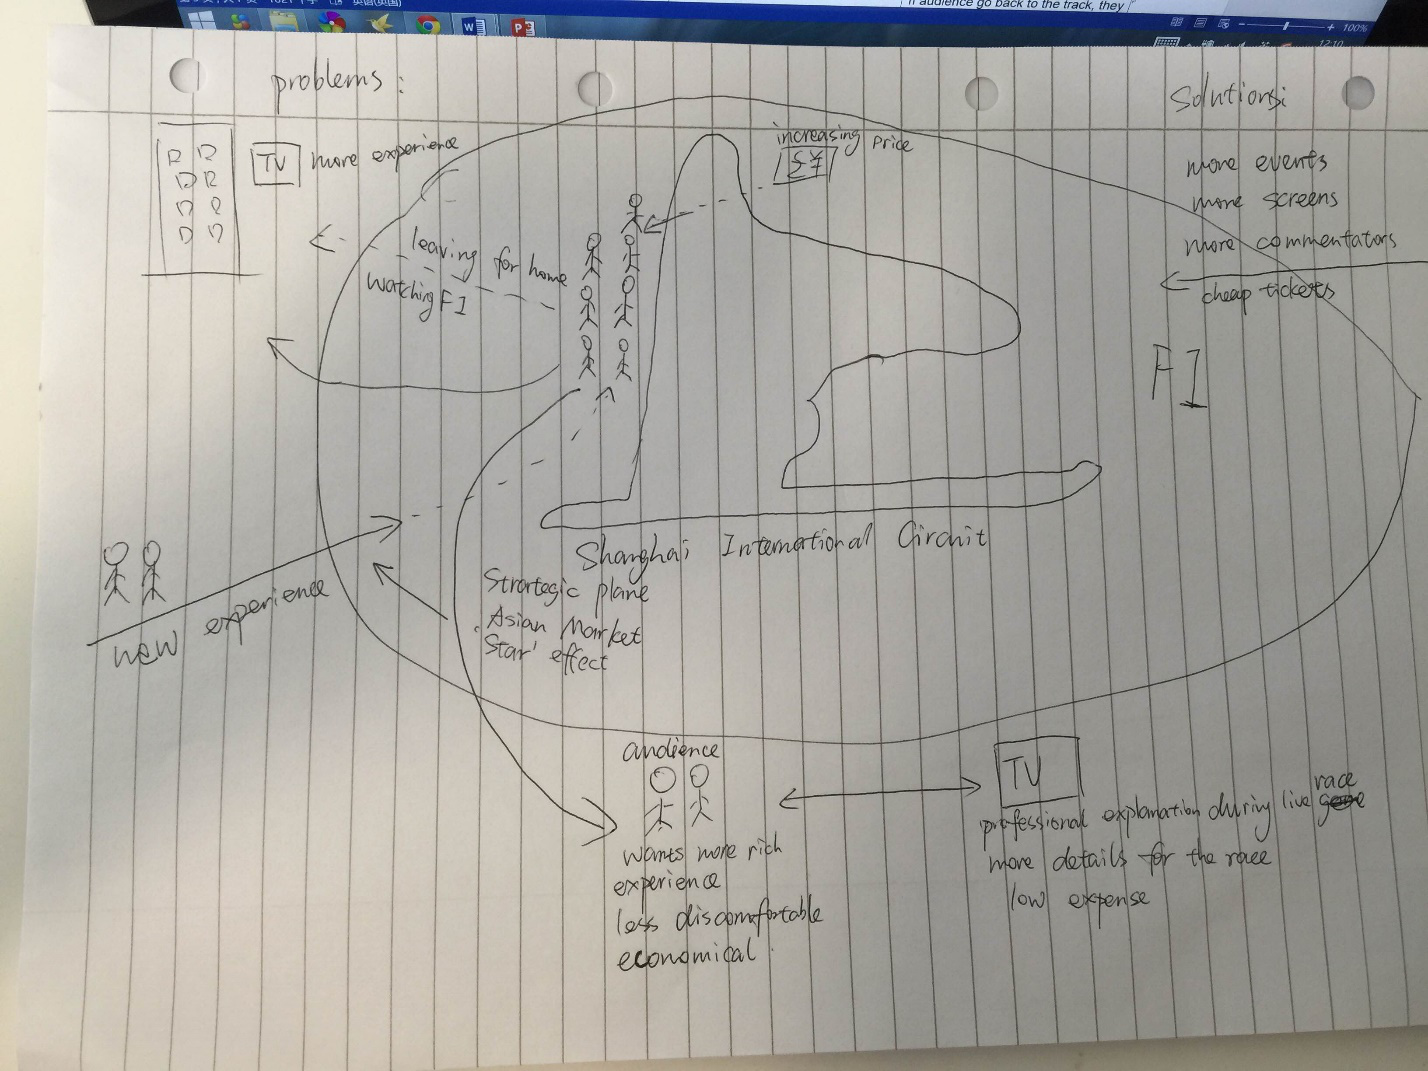 If audience go back to the track, they
100%
12:10
problems:
Solutions:
TV more experience
increasing price
£¥
more events
more screens
more commentators
cheap tickets
leaving for home
watching F1
F1
Shanghai International Circuit
Strortegic plane
Asian Market
Star' effect
new experience
audience
wants more rich
experience
less discomfortable
economical
TV
professional explanation during live race
more details for the race
low expense